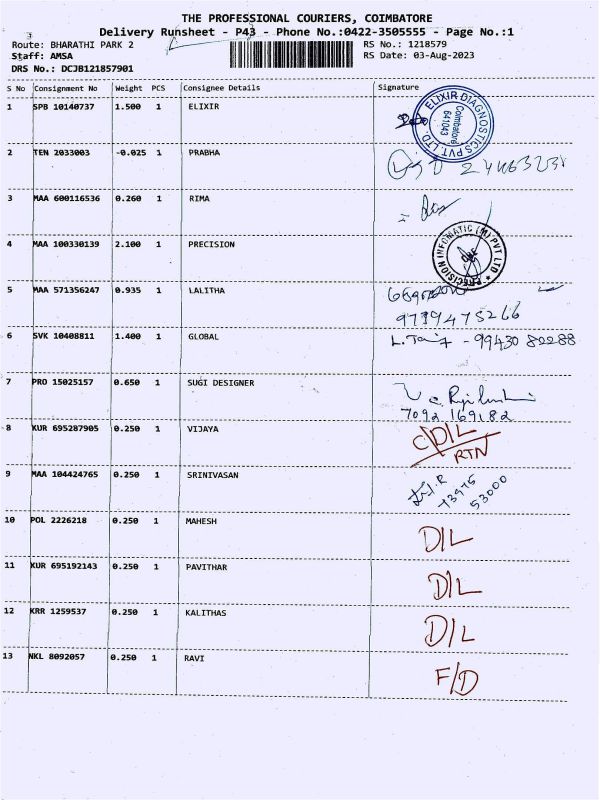 THE PROFESSIONAL COURIERS, COIMBATORE
Delivery Runsheet - P43 - Phone No.:0422-3505555 - Page No.:1
Route: BHARATHI PARK 2 RS No.: 1218579
Staff: AMSA RS Date: 03-Aug-2023
DRS No.: DCJB121857901
S No Consignment No Weight PCS Consignee Details Signature
1 SPB 10140737 1.500 1 ELIXIR
ELIXIR DIAGNOSTICS PVT. LTD. Coimbatore 641043
2 TEN 2033003 -0.025 1 PRABHA
3 MAA 600116536 0.260 1 RIMA
4 MAA 100330139 2.100 1 PRECISION
PRECISION INFOMATIC (M) PVT LTD
5 MAA 571356247 0.935 1 LALITHA
9739475266
6 SVK 10408811 1.400 1 GLOBAL - 99430 82288
7 PRO 15025157 0.650 1 SUGI DESIGNER
7092 169182
8 KUR 695287905 0.250 1 VIJAYA C/D/L
RTN
9 MAA 104424765 0.250 1 SRINIVASAN
73976
53000
10 POL 2226218 0.250 1 MAHESH D/L
11 KUR 695192143 0.250 1 PAVITHAR D/L
12 KRR 1259537 0.250 1 KALITHAS D/L
13 NKL 8092057 0.250 1 RAVI F/D